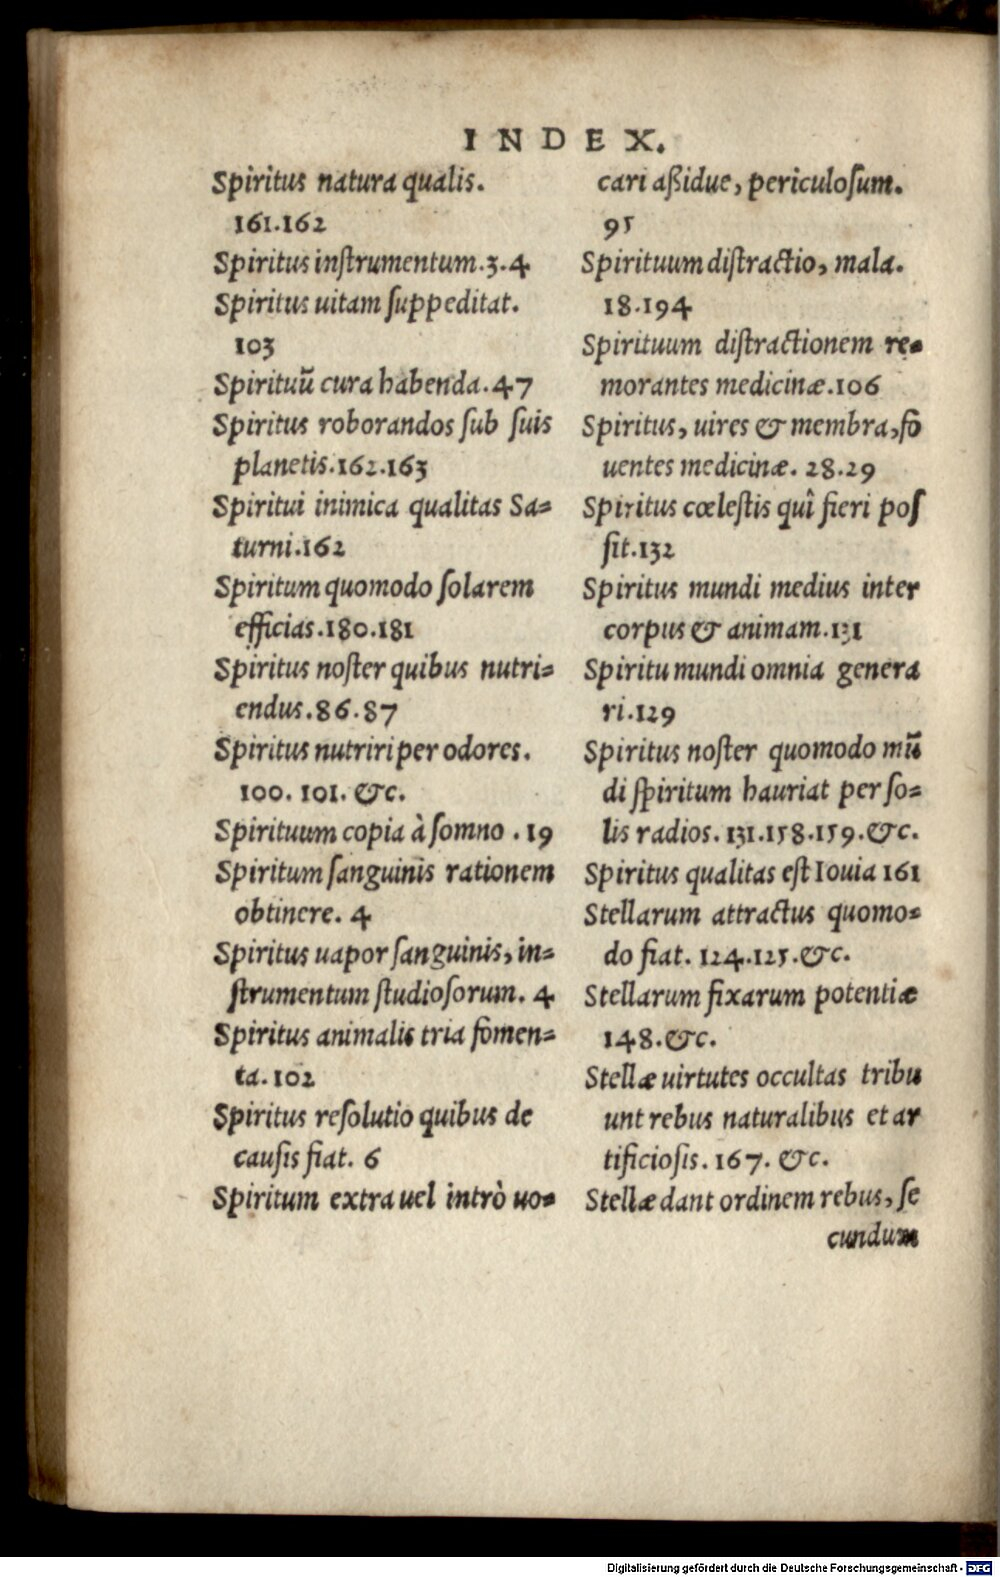 INDEX.
Spiritus natura qualis.
161.162
Spiritus inſtrumentum.3.4
Spiritus uitam ſuppeditat.
103
Spirituũ cura habenda.47
Spiritus roborandos ſub ſuis
planetis.162.163
Spiritui inimica qualitas Sa⸗
turni.162
Spiritum quomodo ſolarem
efficias.180.181
Spiritus noſter quibus nutri⸗
endus.86.87
Spiritus nutriri per odores.
100. 101. &c.
Spirituum copia à ſomno .19
Spiritum ſanguinis rationem
obtinere. 4
Spiritus uapor ſanguinis, in⸗
ſtrumentum ſtudioſorum. 4
Spiritus animalis tria fomen⸗
ta. 102
Spiritus reſolutio quibus de
cauſis fiat. 6
Spiritum extra uel intrò uo⸗
cari aßidue, periculoſum.
95
Spirituum diſtractio, mala.
18.194
Spirituum diſtractionem re⸗
morantes medicinæ.106
Spiritus, uires & membra, fo
uentes medicinæ. 28.29
Spiritus cœleſtis quî fieri poſ
ſit.132
Spiritus mundi medius inter
corpus & animam.131
Spiritu mundi omnia genera
ri.129
Spiritus noſter quomodo mũ
di ſpiritum hauriat per ſo⸗
lis radios. 131.158.159.&c.
Spiritus qualitas eſt Iouia 161
Stellarum attractus quomo⸗
do fiat. 124.125.&c.
Stellarum fixarum potentiæ
148.&c.
Stellæ uirtutes occultas tribu
unt rebus naturalibus et ar
tificioſis. 167. &c.
Stellæ dant ordinem rebus, ſe
cundum
Digitalisierung gefördert durch die Deutsche Forschungsgemeinschaft - DFG